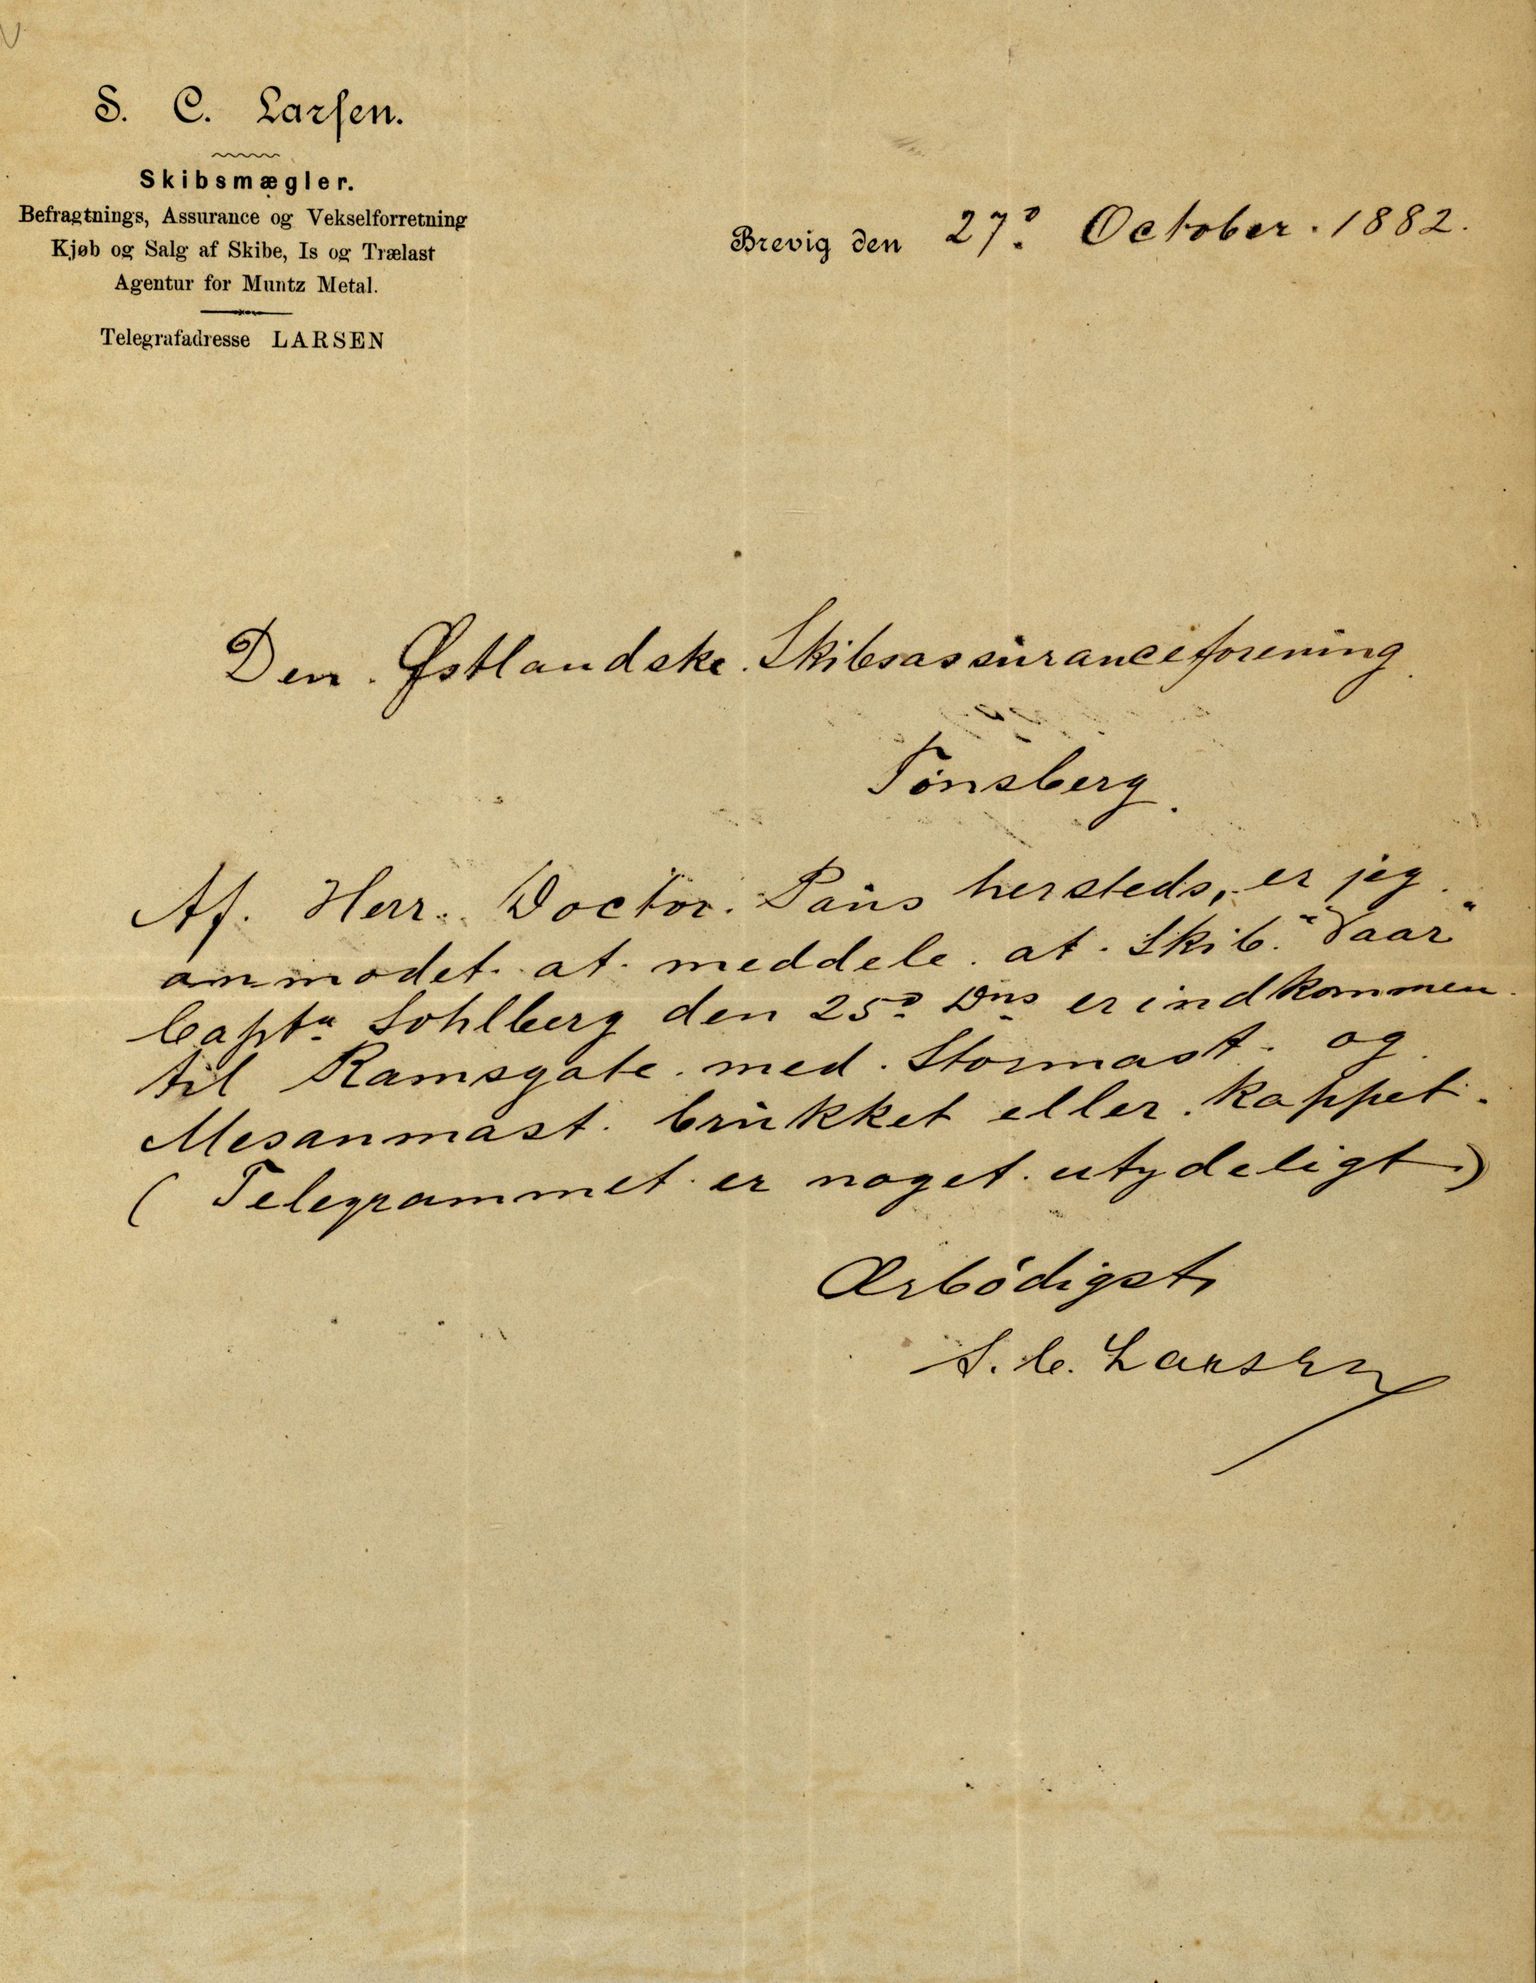 S. C. Larsen.
Skibsmægler.
Befragtnings, Assurance og Vekselforretning
Kjøb og Salg af Skibe, Is og Trælast
Agentur for Muntz Metal.
Telegrafadresse LARSEN
Brevig den 27de October. 1882.
Den Østlandske Skibsassuranceforening
Tönsberg.
Af. Herr. Doctor. Paus hersteds, er jeg
anmodet at meddele at Skib. "Vaar"
Captn Sohlberg den 25de Dns er indkommen
til Ramsgate med Stormast og
Mesanmast brukket eller kappet.
(Telegrammet er noget utydeligt)
Ærbödigst,
S. C. Larsen